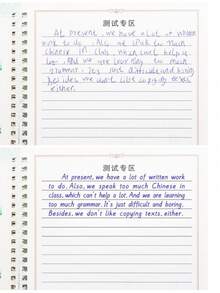 测试专区
At present, we have a lot of written
work to do. Also we speak too much
Chinese in class which can't help a
lot. And we are learning too much
grammar. It's just difficult and boring.
Besides we don't like copying texts
either.
测试专区
At present, we have a lot of written work
to do. Also, we speak too much Chinese in
class, which can't help a lot. And we are learning
too much grammar. It's just difficult and boring.
Besides, we don't like copying texts, either.